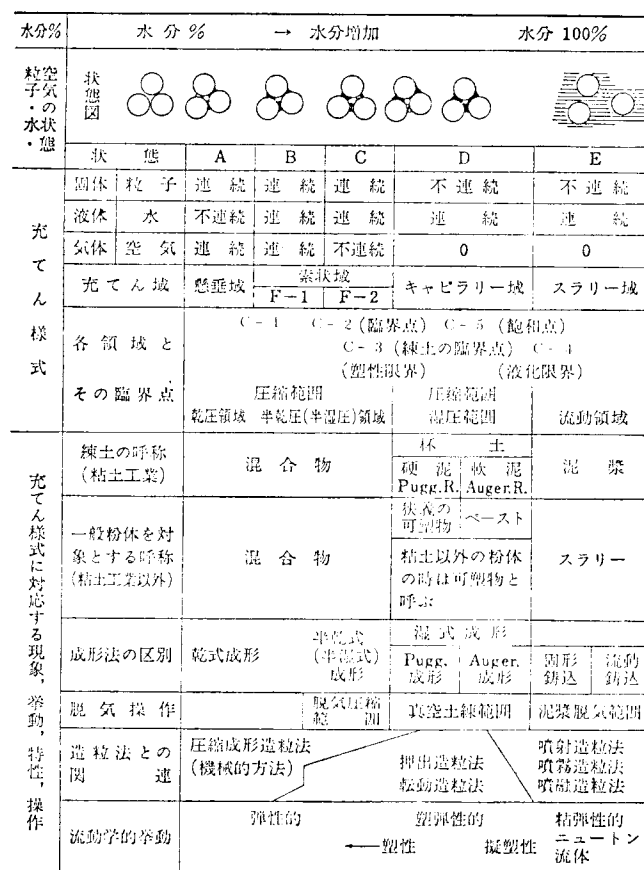 水分% 水分% → 水分増加 水分100%
空気の状態
粒子・水・
状態図
状 態 A B C D E
固体 粒子 連続 連続 連続 不連続 不連続
液体 水 不連続 連続 連続 連続 連続
気体 空気 連続 連続 不連続 0 0
充てん様式
充てん域 懸垂域 索状域 キャピラリー域 スラリー域
F-1 F-2
各領域と
その臨界点
C-1 C-2(臨界点) C-5(飽和点)
C-3(練土の臨界点) C-4
(塑性限界) (液化限界)
圧縮範囲 圧縮範囲
乾圧領域 半乾圧(半湿圧)領域 湿圧範囲 流動領域
充てん様式に対応する現象,挙動,特性,操作
練土の呼称
(粘土工業)
混合物
杯土
硬泥 軟泥
Pugg.R. Auger.R.
泥漿
一般粉体を対
象とする呼称
(粘土工業以外)
混合物
狭義の
可塑物
ペースト
粘土以外の粉体
の時は可塑物と
呼ぶ
スラリー
成形法の区別 乾式成形
半乾式
(半湿式)
成形
湿式成形
Pugg. Auger.
成形 成形
固形 流動
鋳込 鋳込
脱気操作
脱気圧縮
範囲
真空土練範囲 泥漿脱気範囲
造粒法との
関連
圧縮成形造粒法
(機械的方法)
押出造粒法
転動造粒法
噴射造粒法
噴霧造粒法
噴融造粒法
流動学的挙動
弾性的 塑弾性的 粘弾性的
←塑性 擬塑性 ニュートン
流体